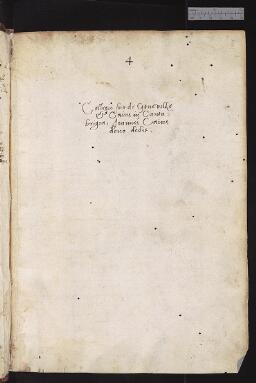 4
Collegio suo de Goneville
& Caius in Canta-
brigia, Joannes Caius
dono dedit.